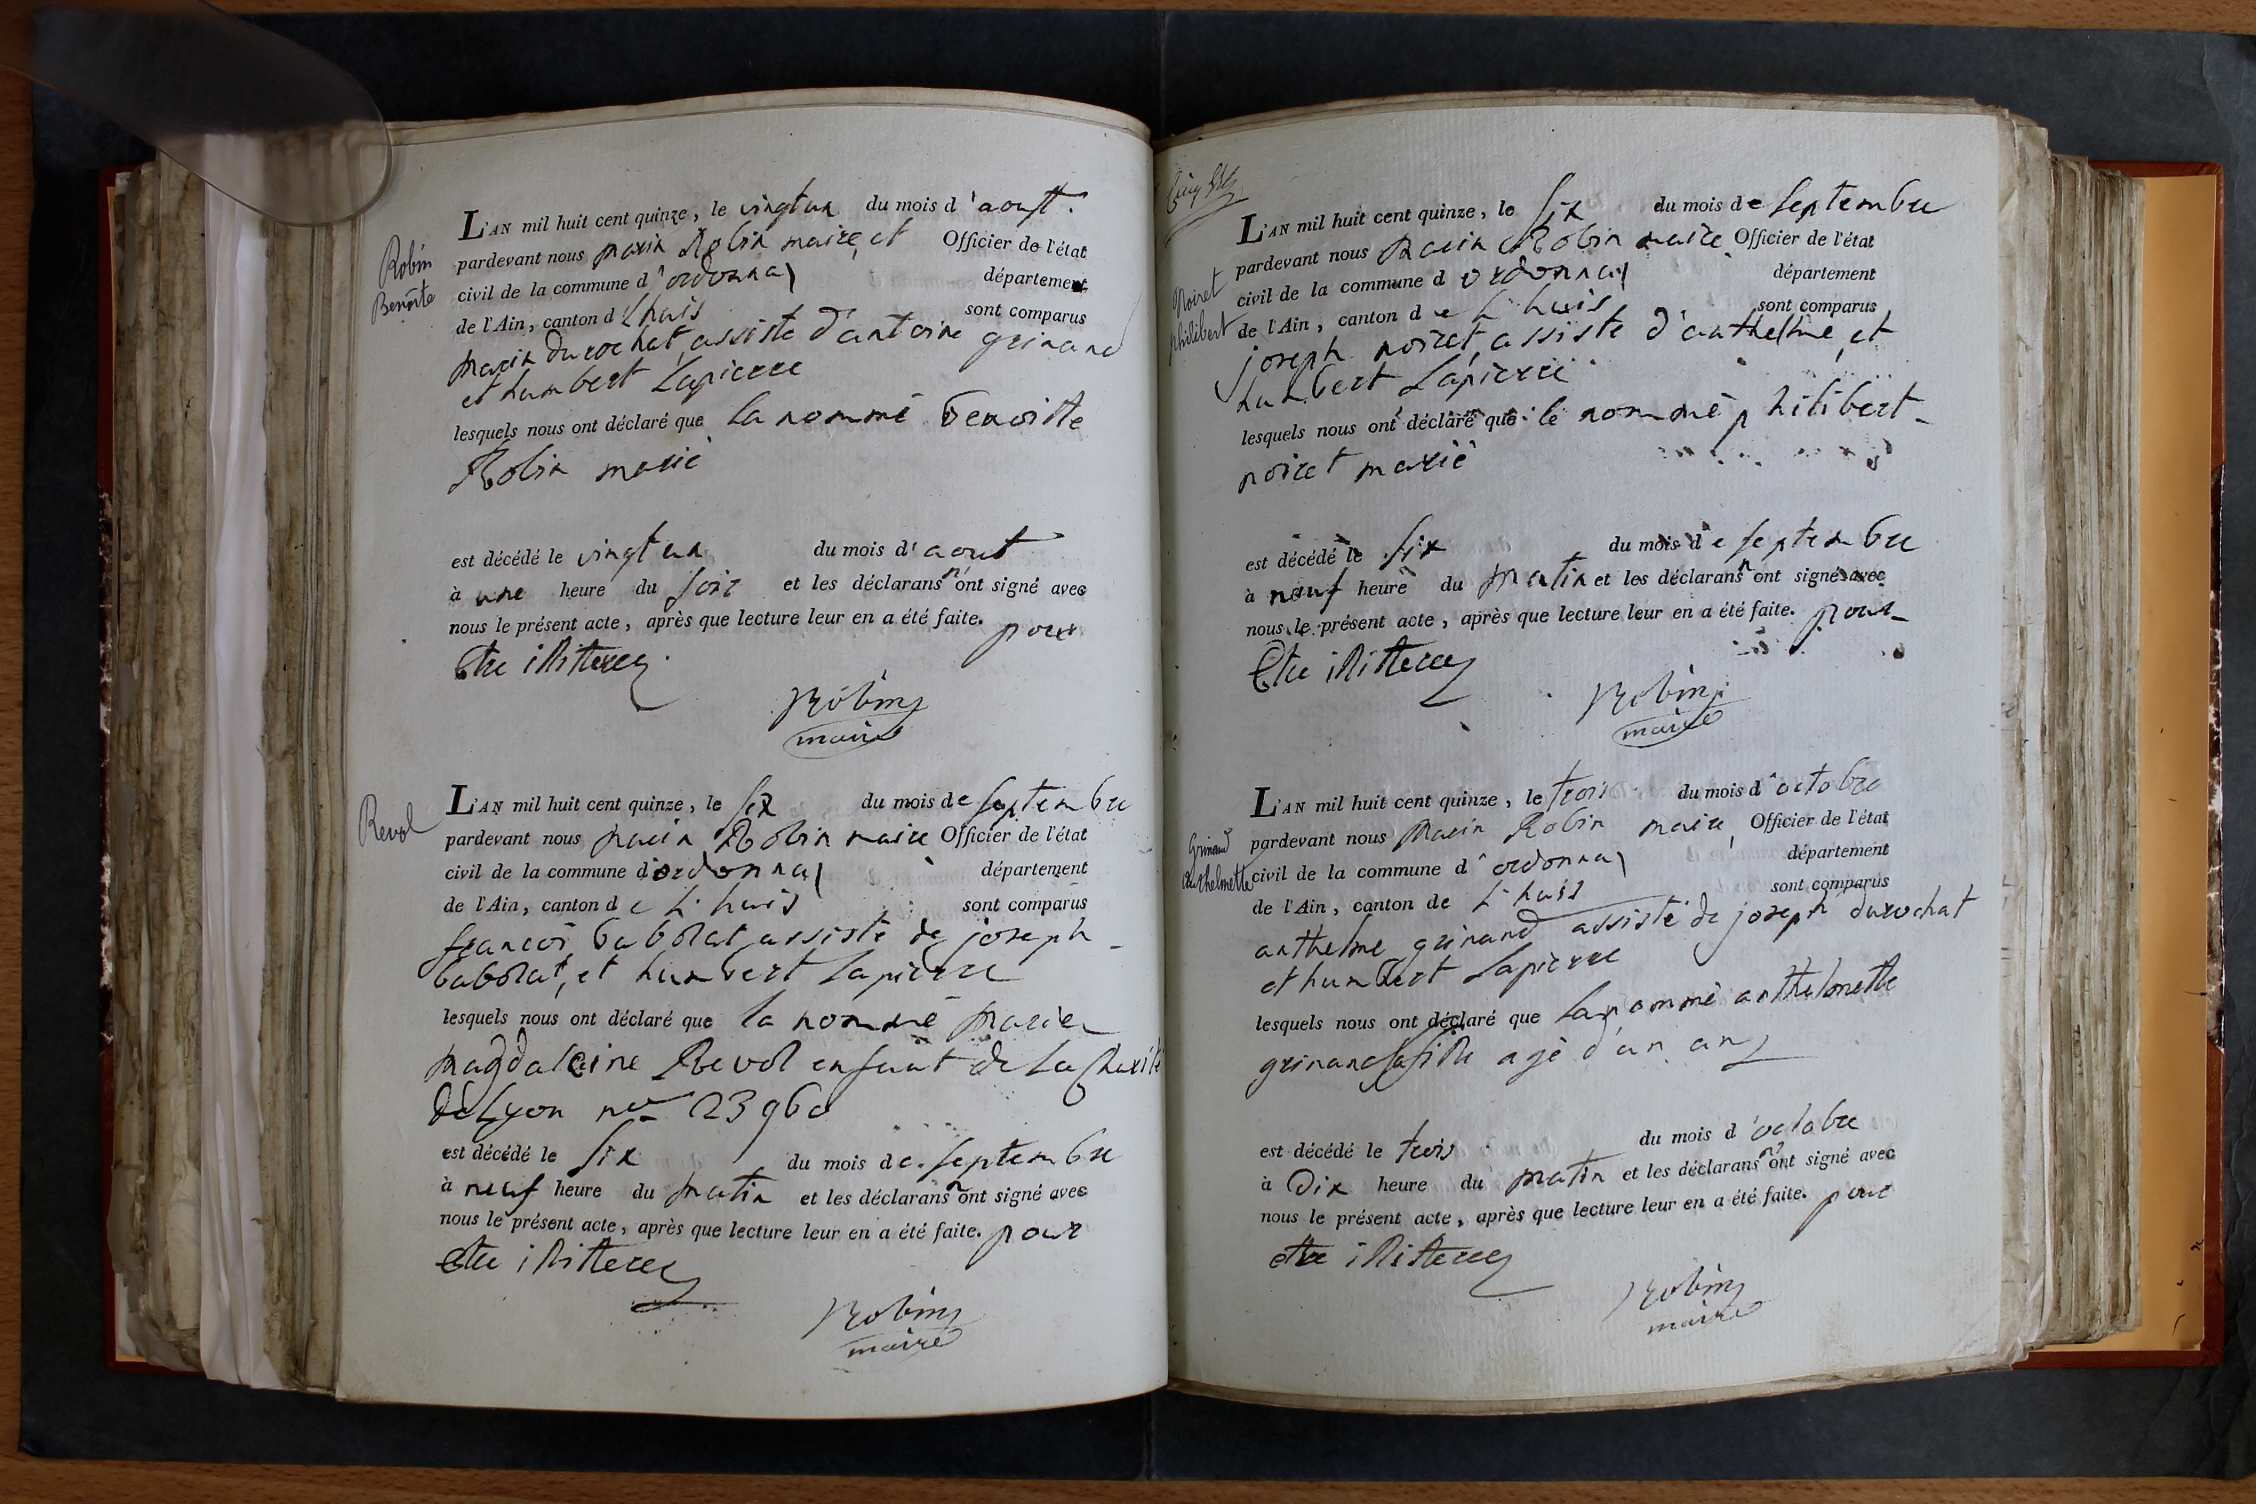 Robin
Benoite
L'AN mil huit cent quinze, le vingt un du mois d'aoust.
pardevant nous marin Robin maire, et Officier de l'état
civil de la commune d'ordonnay département
de l'Ain, canton d Lhuis sont comparus
marin durochat, assiste d'antoine grinand
et humbert Lapierre
lesquels nous ont déclaré que la nommé benoitte
Robin marié
est décédé le vingt un du mois d'aout
à une heure du soir et les déclarans n'ont signé avec
nous le présent acte, après que lecture leur en a été faite. pour
Etre illiterez
Robin
maire
Revol
L'AN mil huit cent quinze, le six du mois de septembre
pardevant nous marin Robin maire Officier de l'état
civil de la commune d'ordonnay département
de l'Ain, canton de L'huis sont comparus
francois babolat, assisté de joseph
babolat, et humbert Lapierre
lesquels nous ont déclaré que la nommé marie
magdaleine Revol enfant de La Charité
de Lyon no 23960
est décédé le six du mois de septembre
à neuf heure du matin et les déclarans n'ont signé avec
nous le présent acte, après que lecture leur en a été faite. pour
etre illiterez
Robin
maire
Noiret
philibert
L'AN mil huit cent quinze, le six du mois de septembre
pardevant nous marin Robin maire Officier de l'état
civil de la commune d ordonnay département
de l'Ain, canton de L'huis sont comparus
joseph noiret, assisté d'anthelme, et
humbert Lapierre
lesquels nous ont déclaré que le nommé philibert
noiret marié
est décédé le six du mois de septembre
à neuf heure du matin et les déclarans n'ont signé avec
nous le présent acte, après que lecture leur en a été faite. pour
Etre illiterez
Robin
maire
Grinand
anthelmette
L'AN mil huit cent quinze, le trois du mois d'octobre
pardevant nous marin Robin maire, Officier de l'état
civil de la commune d'ordonnay département
de l'Ain, canton de L'huis sont comparus
anthelme grinand assisté de joseph durochat
et humbert Lapierre
lesquels nous ont déclaré que la nommé anthelmette
grinand sa fille agé d'un an
est décédé le trois du mois d'octobre
à dix heure du matin et les déclarans n'ont signé avec
nous le présent acte, après que lecture leur en a été faite. pour
etre illiterez
Robin
maire